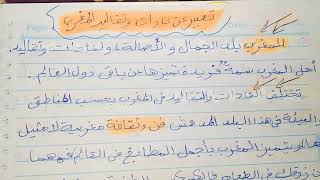 تعبير عن عادات وتقاليد المغرب
المغرب بلد الجمال و الأصالة ولعادات وتقاليد
أهل المغرب سمة فريدة تميزها عن باقي دول العالم
تختلف العادات والتقاليد في المغرب بحسب المناطق
في هذا البلد المدهش فن وثقافة مغربية لا مثيل
يتميز المغرب بأجمل المطابخ في العالم فمهما
ذوقك في الطعام